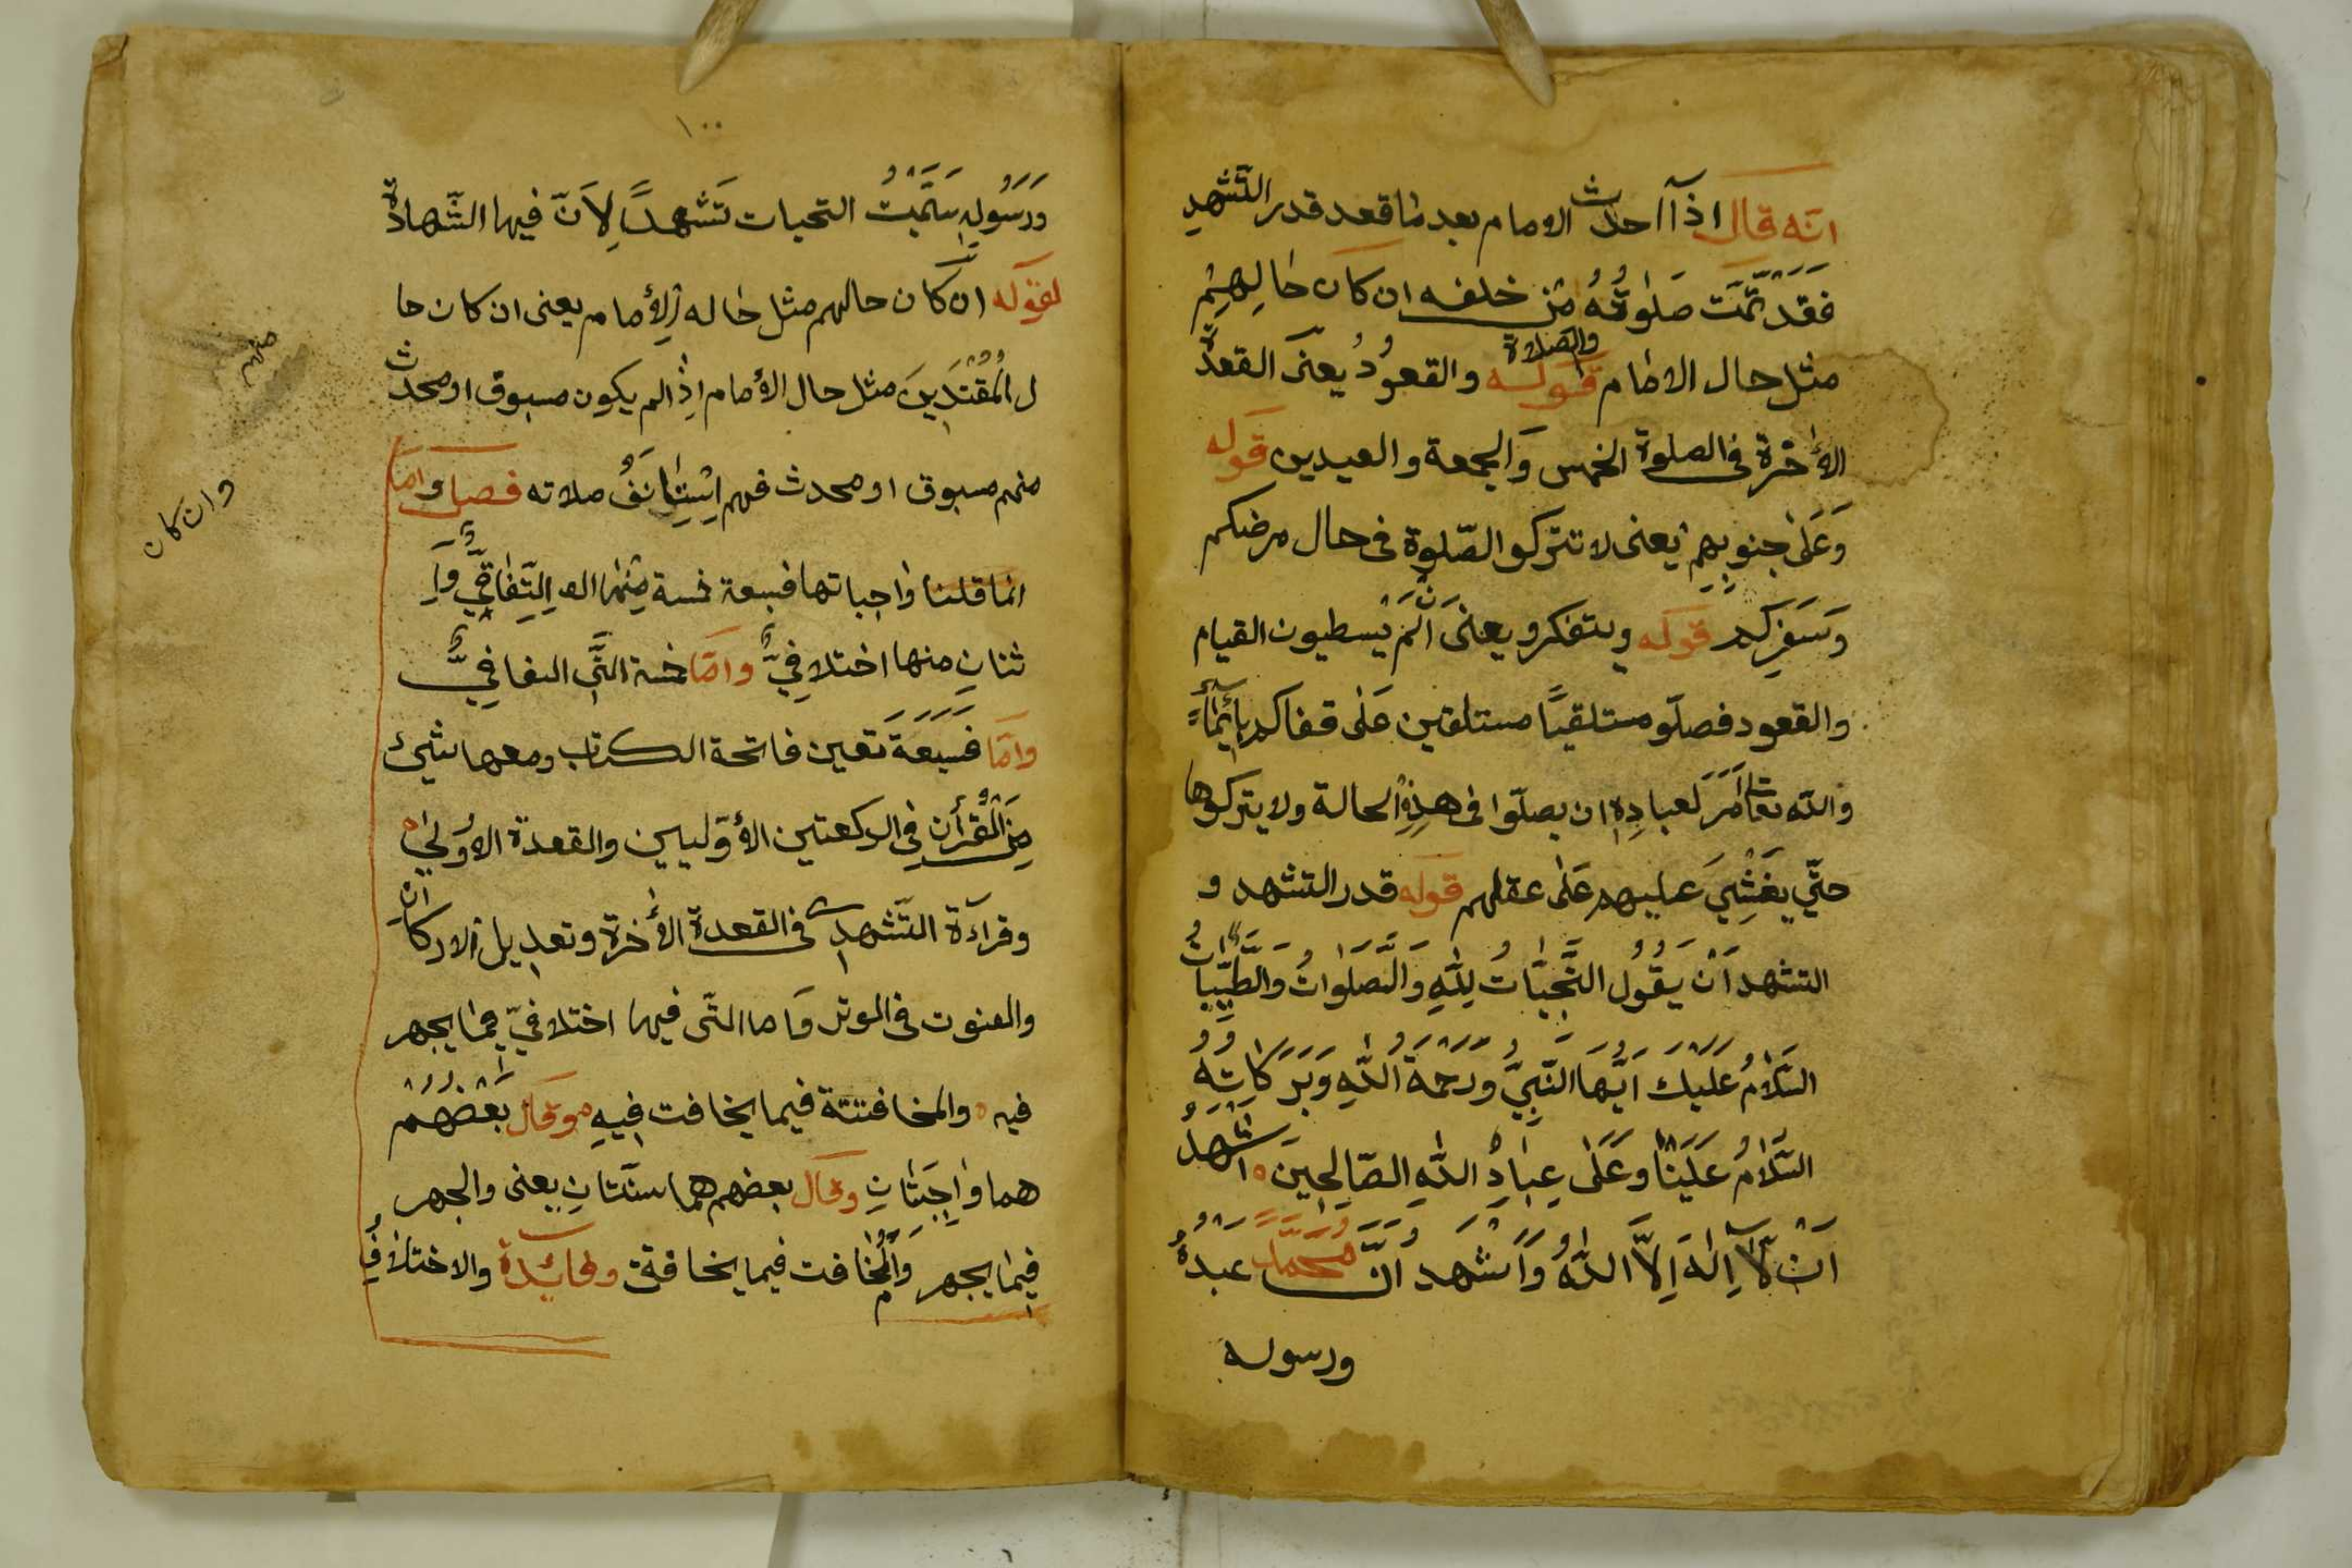 انه قال اذا احدث الامام بعد ما قعد قدر التّشهدِ
فَقَدْ تَمَّتْ صَلٰوتُهُ مَنْ خلفه ان كان حٰالِهِمْ
مثل حال الامٰام قوله والصلاة والقعوُدُ يعنىَ القعدَّة
الأٰخرة فى الصلوة الخمس وَالجمعة والعيدين قوله
وَعَلٰى جنوبِهِمْ يَعنى لا تتركو الصّلوة فى حال مرضكم
وَسَفَرِكم قوله ويتفكرو يعنىَ انْ لَمْ يَسطيون القيام
والقعود فصلّو مستلقيًا مستلقين عَلٰى قفاكم بِأيْمٰاءٍ
والله تعالٰى اَمَرَ لعبادِهِ ان يصلّوا فى هذِهِ الحالة ولا يتركوها
حتّى يغْشِىَ عليهم عَلٰى عقلهم قوله قدر التشهد و
التشهد اَنْ يَقُولُ التَّحِيّٰاتُ لِلّٰهِ وَالصَّلَوٰاتُ وَالطَّيِّبٰاتُ
السَّلَامُ عَلَيْكَ اَيُّهَا النَّبِىُّ وَرَحْمَةُ اللّٰهِ وَبَرَكَاتُهُ
السَّلَامُ عَلَيْنٰا وَعَلٰى عِبٰادِ اللّٰهِ الصّٰالِحِينَ اَشْهَدُ
اَنْ لٰآ اِلٰهَ اِلَّا اللّٰهُ وَاَشْهَدُ اَنَّ مُحَمَّدًا عَبْدُهُ
ورسوله
١٠٠
وَرَسُولِهِ سَمَّيْتُ التحيات تَشهدًا لِاَنّ فيها الشّهادة
لقوله ان كَان حالهم مثل حٰاله الأمام يعنى ان كان حا
ل المُقْتَدِينَ مثل حال الأمام اِذا لم يكون مسبوق او محدث
منهم مسبوق او محدث فهم اِسْتِيٰانَفُ صلاته فصل وامّا
انما قلنا وٰاجباتها فسبعة خمسة مِنْهٰا اِتِّفٰاقِىٌّ وَاِ
ثنانِ منها اختلافِىٌّ وامّا خمسة الَّتِى اتفاقِىٌّ
وامّا فسبعَةَ تَعيين فاتحة الكتاب ومعها شيئ
مِنَ الْقُرأنِ فِى الركعتين الأوّليين والقعدة الاوُلىٰ
وقرآءة التّشهدِ فى القعدة الأٰخرة وتعديل الاركان
والقنوت فى الوتر وَاما التّى فيها اختلافىّ فمٰا يجهر
فيه والمخافتتة فيما يخافت فِيهِ وقال بَعْضُهُمْ
هما وٰاجِبَتٰانِ وقال بعضهم هما سنّتانِ يعنى والجهر
فِيمٰا يجهر وَالْمُخٰافت فيما يخافة وفائدة والاختلافِ
منهم
وان كان